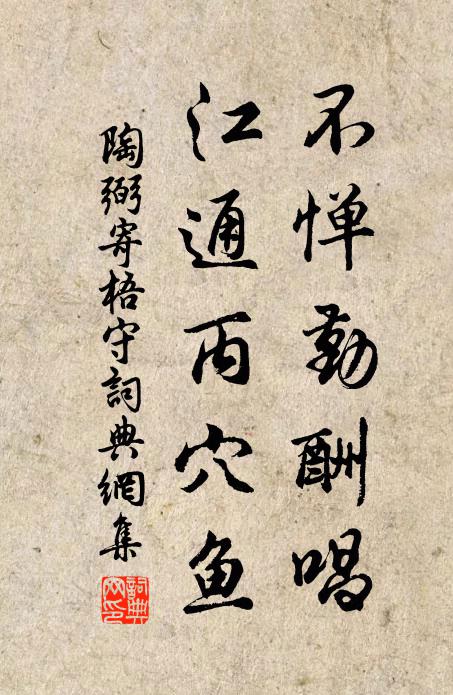 不惮勤酬唱
江通丙穴鱼
陶弼寄梧守詞典網集
詞典网印